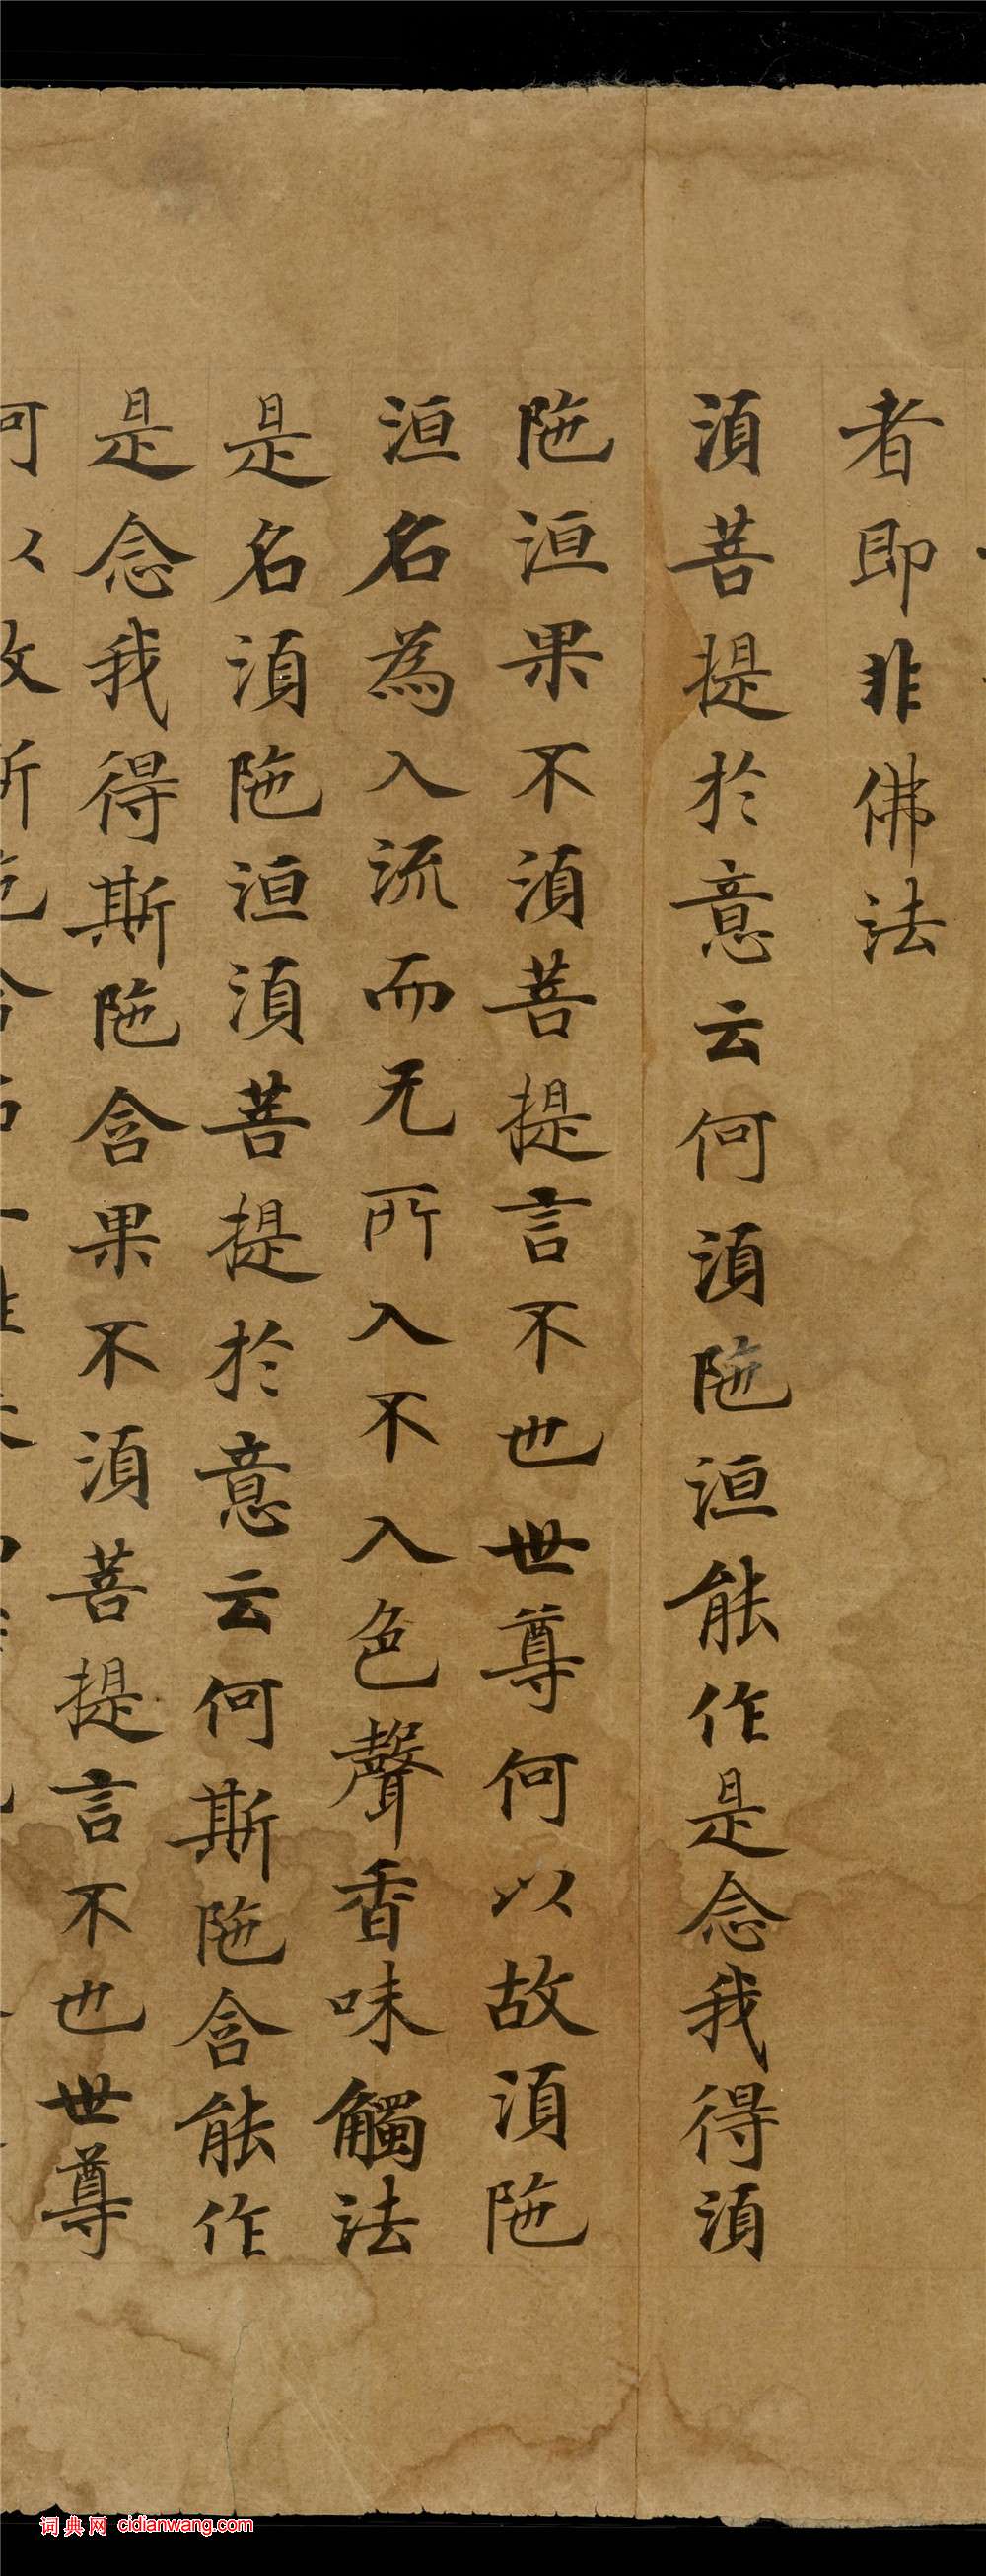 者即非佛法
湏菩提於意云何湏陁洹能作是念我得湏
陁洹果不湏菩提言不也世尊何以故湏陁
洹名為入流而无所入不入色聲香味觸法
是名湏陁洹湏菩提於意云何斯陁含能作
是念我得斯陁含果不湏菩提言不也世尊
词典网 cidianwang.com